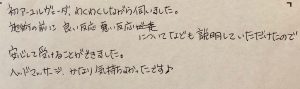 初アーユルヴェーダ、わくわくしながら伺いました。
施術の前に 良い反応 悪い反応
についてなども説明していただけたので
安心して受けることができました。
ヘッドマッサージ、かなり気持ちよかったです♪